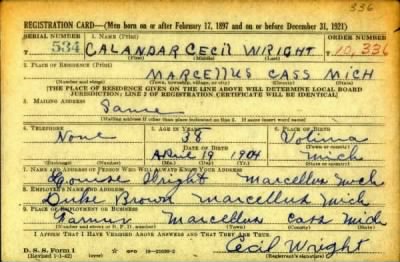 336
REGISTRATION CARD—(Men born on or after February 17, 1897 and on or before December 31, 1921)
SERIAL NUMBER 1. NAME (Print) ORDER NUMBER
T 534 CALANDAR CECIL WRIGHT T 10,336
(First) (Middle) (Last)
2. PLACE OF RESIDENCE (Print)
MARCELLUS CASS MICH
(Number and street) (Town, township, village, or city) (County) (State)
[THE PLACE OF RESIDENCE GIVEN ON THE LINE ABOVE WILL DETERMINE LOCAL BOARD
JURISDICTION; LINE 2 OF REGISTRATION CERTIFICATE WILL BE IDENTICAL]
3. MAILING ADDRESS
Same
(Mailing address if other than place indicated on line 2. If same insert word same)
4. TELEPHONE 5. AGE IN YEARS 6. PLACE OF BIRTH
None 38 Volinia
DATE OF BIRTH (Town or county)
April 19 1904 Mich
(Exchange) (Number) (Mo.) (Day) (Yr.) (State or country)
7. NAME AND ADDRESS OF PERSON WHO WILL ALWAYS KNOW YOUR ADDRESS
Louise Wright Marcellus Mich
8. EMPLOYER'S NAME AND ADDRESS
Duke Brown Marcellus Mich
9. PLACE OF EMPLOYMENT OR BUSINESS
Farmer Marcellus Cass Mich
(Number and street or R. F. D. number) (Town) (County) (State)
I AFFIRM THAT I HAVE VERIFIED ABOVE ANSWERS AND THAT THEY ARE TRUE.
D. S. S. Form 1
(Revised 1-1-42) (over)
Cecil Wright
(Registrant's signature)